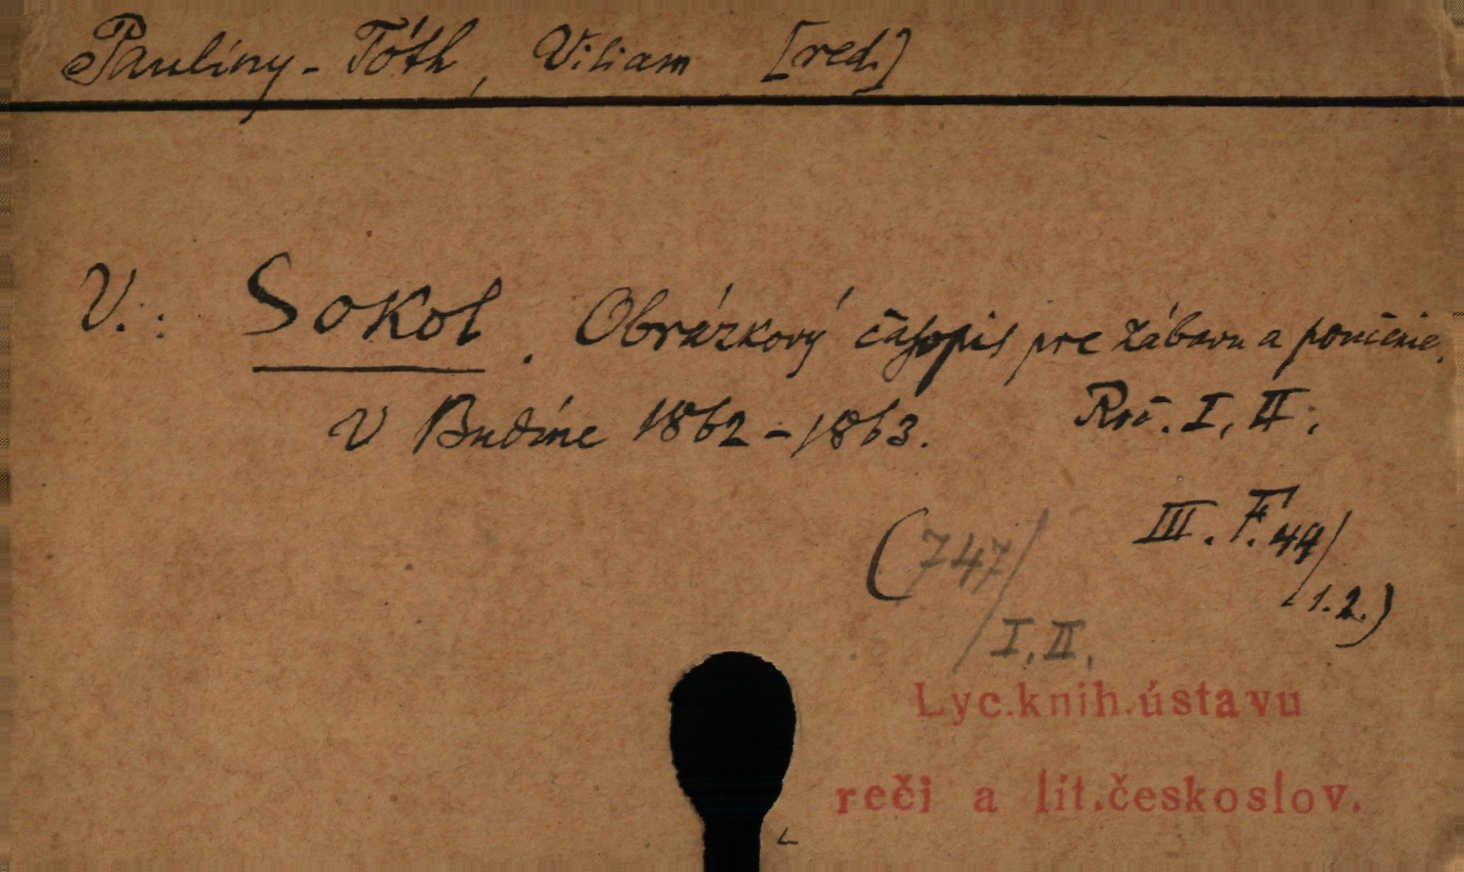 Paulíny-Tóth, Viliam [red.]
V.: Sokol. Obrázkový časopis pre zábavu a poučenie.
V Budíne 1862-1863. Roč. I, II;
III. F. 44/1.2.)
(747/I, II.
Lyc.knih.ústavu
reči a lit.českoslov.